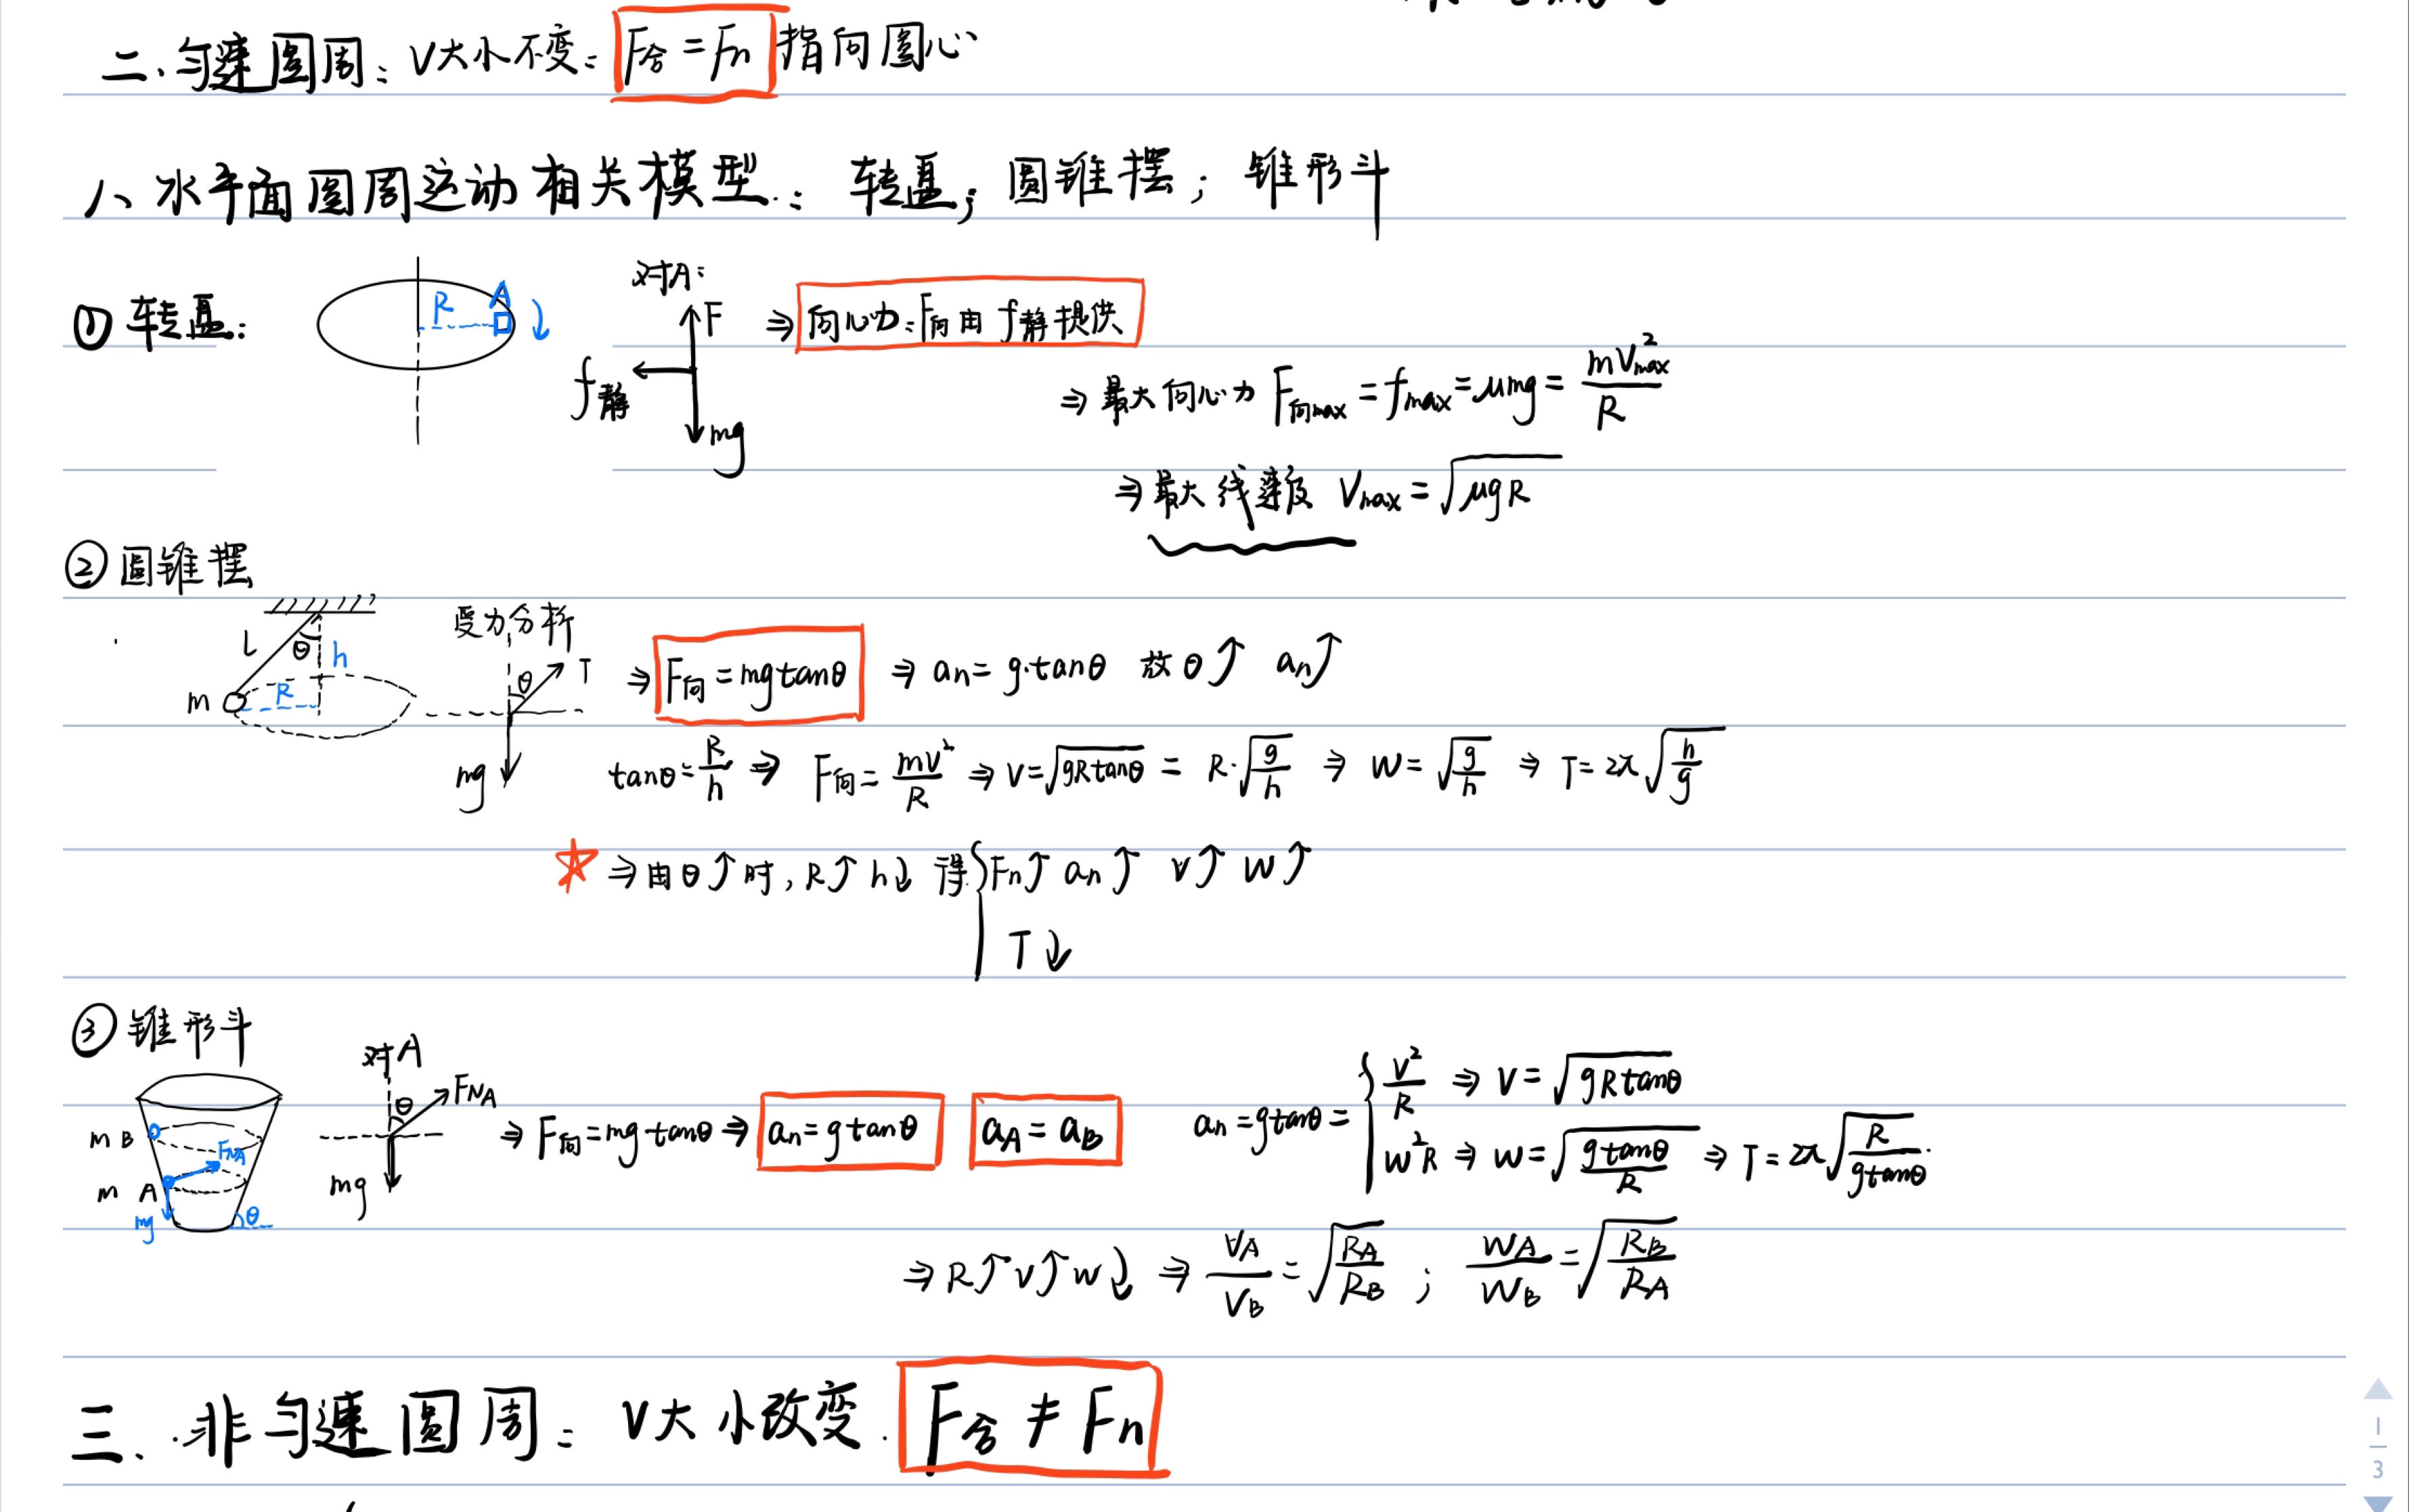 二、匀速圆周：V大小不变：F合=Fn 指向圆心
1、水平面圆周运动相关模型：转盘；圆锥摆；锥形斗
① 转盘：
R A
对A：
F
f静
mg
⇒ 向心力：F向由f静提供
⇒ 最大向心力 F向max = fmax = μmg = mV²max/R
⇒ 最大线速度 Vmax = √(μgR)
② 圆锥摆
L θ h
m R
受力分析
θ T
mg
⇒ F向 = mgtanθ ⇒ an = g·tanθ 故θ↑ an↑
tanθ = R/h ⇒ F向 = mV²/R ⇒ V = √(gRtanθ) = R·√(g/h) ⇒ W = √(g/h) ⇒ T = 2π√(h/g)
☆ ⇒ 由θ↑时，R↑ h↓ 得 { Fn↑ an↑ V↑ W↑
T↓
③ 锥形斗
m B
FNA
m A
mg θ
对A
θ FNA
mg
⇒ F向 = mgtanθ ⇒ an = gtanθ aA = aB
an = gtanθ = { V²/R ⇒ V = √(gRtanθ)
W²R ⇒ W = √(gtanθ/R) ⇒ T = 2π√(R/gtanθ)
⇒ R↑ V↑ W↓ ⇒ VA/VB = √(RA/RB) ； WA/WB = √(RB/RA)
三、非匀速圆周：V大小改变. F合 ≠ Fn
1
3